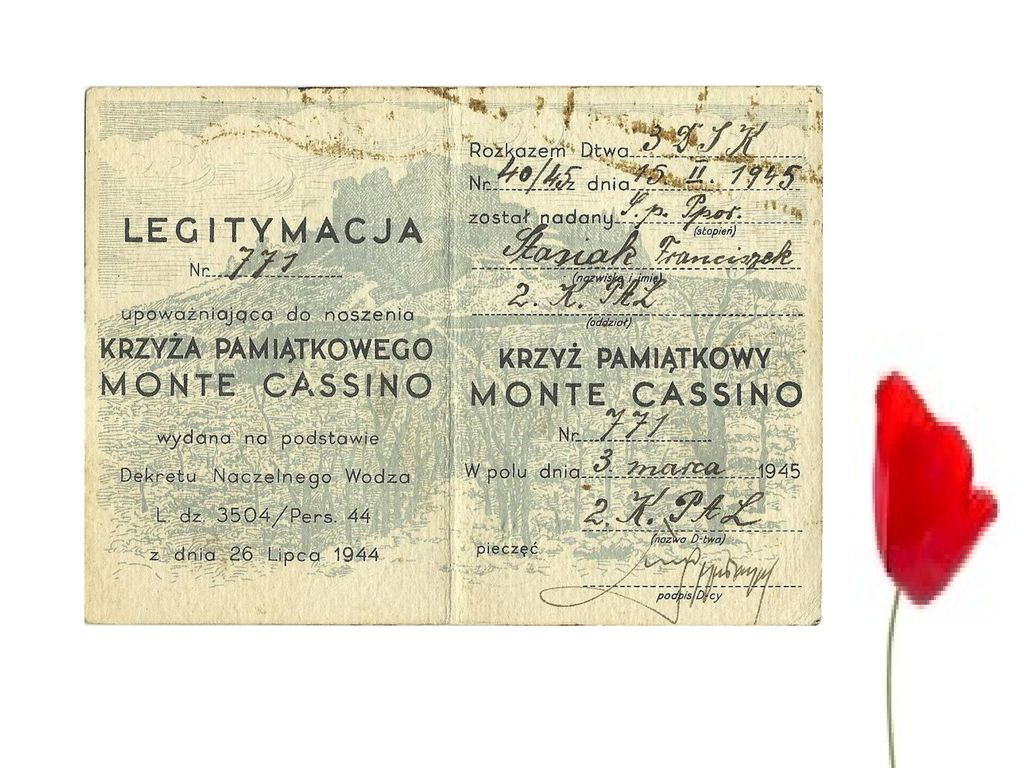 LEGITYMACJA
Nr. 771
upoważniająca do noszenia
KRZYŻA PAMIĄTKOWEGO
MONTE CASSINO
wydana na podstawie
Dekretu Naczelnego Wodza
L. dz. 3504/Pers. 44
z dnia 26 Lipca 1944
Rozkazem Dtwa 3 D S K
Nr. 40/45 z dnia 15. II. 1945
został nadany Ś. p. Ppor.
(stopień)
Stasiak Franciszek
(nazwisko i imię)
2. K. PAL
(oddział)
KRZYŻ PAMIĄTKOWY
MONTE CASSINO
Nr. 771
W polu dnia 3. marca 1945
2. K. PAL
(nazwa D-twa)
pieczęć
podpis D-cy